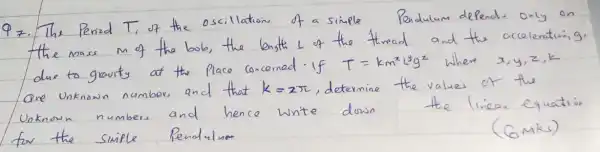 Q7. The Period T, of the oscillation of a simple Pendulum depends only on
the mass m of the bob, the length L of the thread and the acceleration, g,
due to gravity at the Place concerned. If T = km^x L^y g^z where x, y, z, k
are unknown numbers and that k = 2π, determine the values of the
unknown numbers and hence write down the linear equation
for the simple Pendulum (6mks)